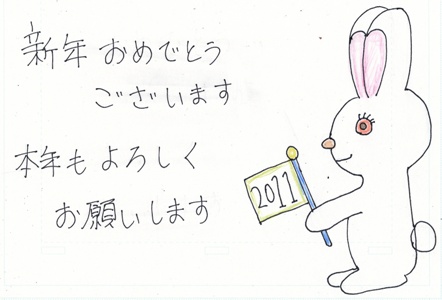 新年おめでとう
ございます
本年もよろしく
お願いします
2011